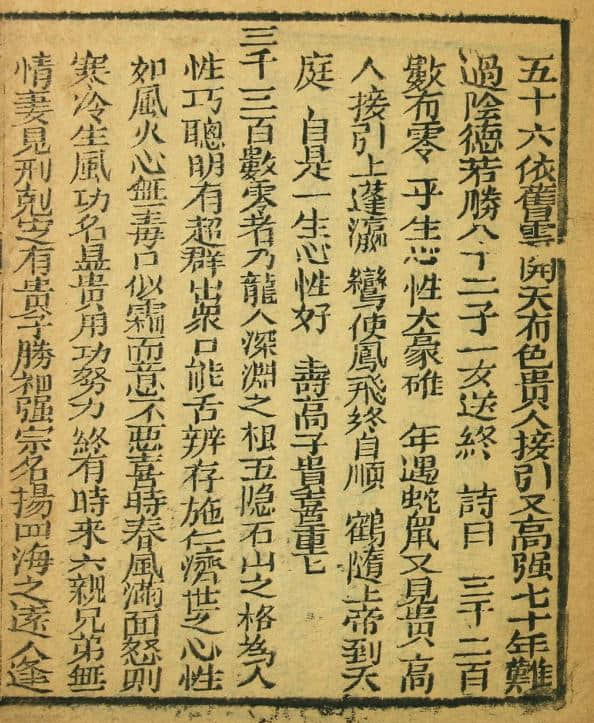 五十六依舊雲開天布色貴人接引又高强七十年難
過陰德若勝人丁二子一女送終 詩曰 三千二百
數有零 乎生心性大豪雄 年遇蛇鼠又見貴人高
人接引上蓬瀛 鸞使鳳飛終自順 鶴隨上帝到天
庭 自是一生心性好 壽高子貴喜重七
三千三百數零者乃龍人深淵之相玉隐石山之格為人
性巧聰明有超群出衆口能舌辨存施仁濟世之心性
如風火心無毒口似霜而意不惡喜時春風滿面怒則
寒冷生風功名显貴用功努力終有時来六親兄弟無
情妻見刑尅定有貴子勝祖强宗名揚四海之遠人逢